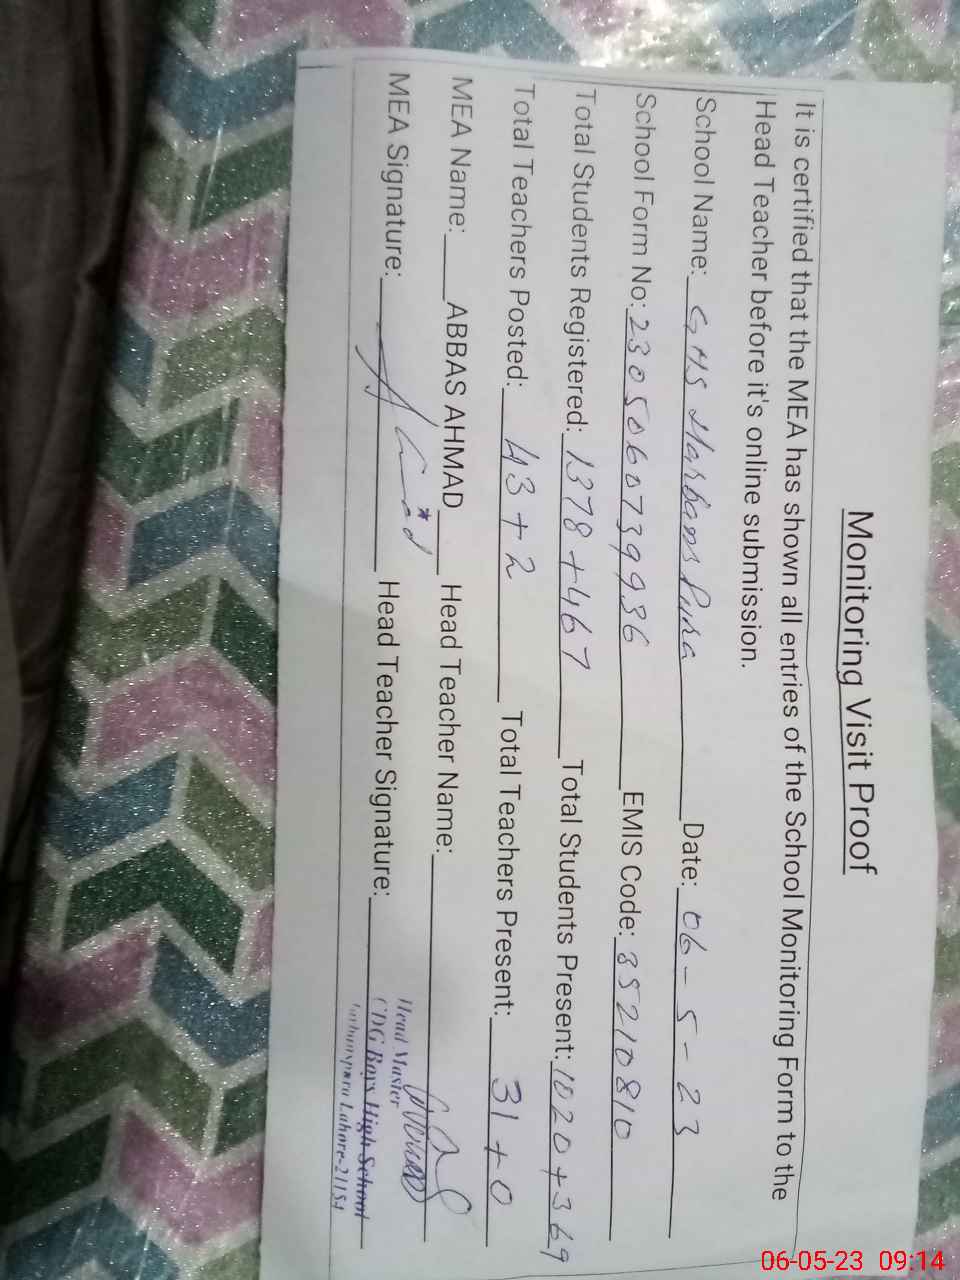 Monitoring Visit Proof
It is certified that the MEA has shown all entries of the School Monitoring Form to the
Head Teacher before it's online submission.
School Name: GHS Harbans Pura Date: 06-5-23
School Form No: 2305060739936 EMIS Code: 35210810
Total Students Registered: 1378+467 Total Students Present: 1020+369
Total Teachers Posted: 43+2 Total Teachers Present: 31+0
MEA Name: ABBAS AHMAD Head Teacher Name:
MEA Signature: Head Teacher Signature:
Head Master
CDG Boys High School
Lahore-21154
06-05-23 09:14